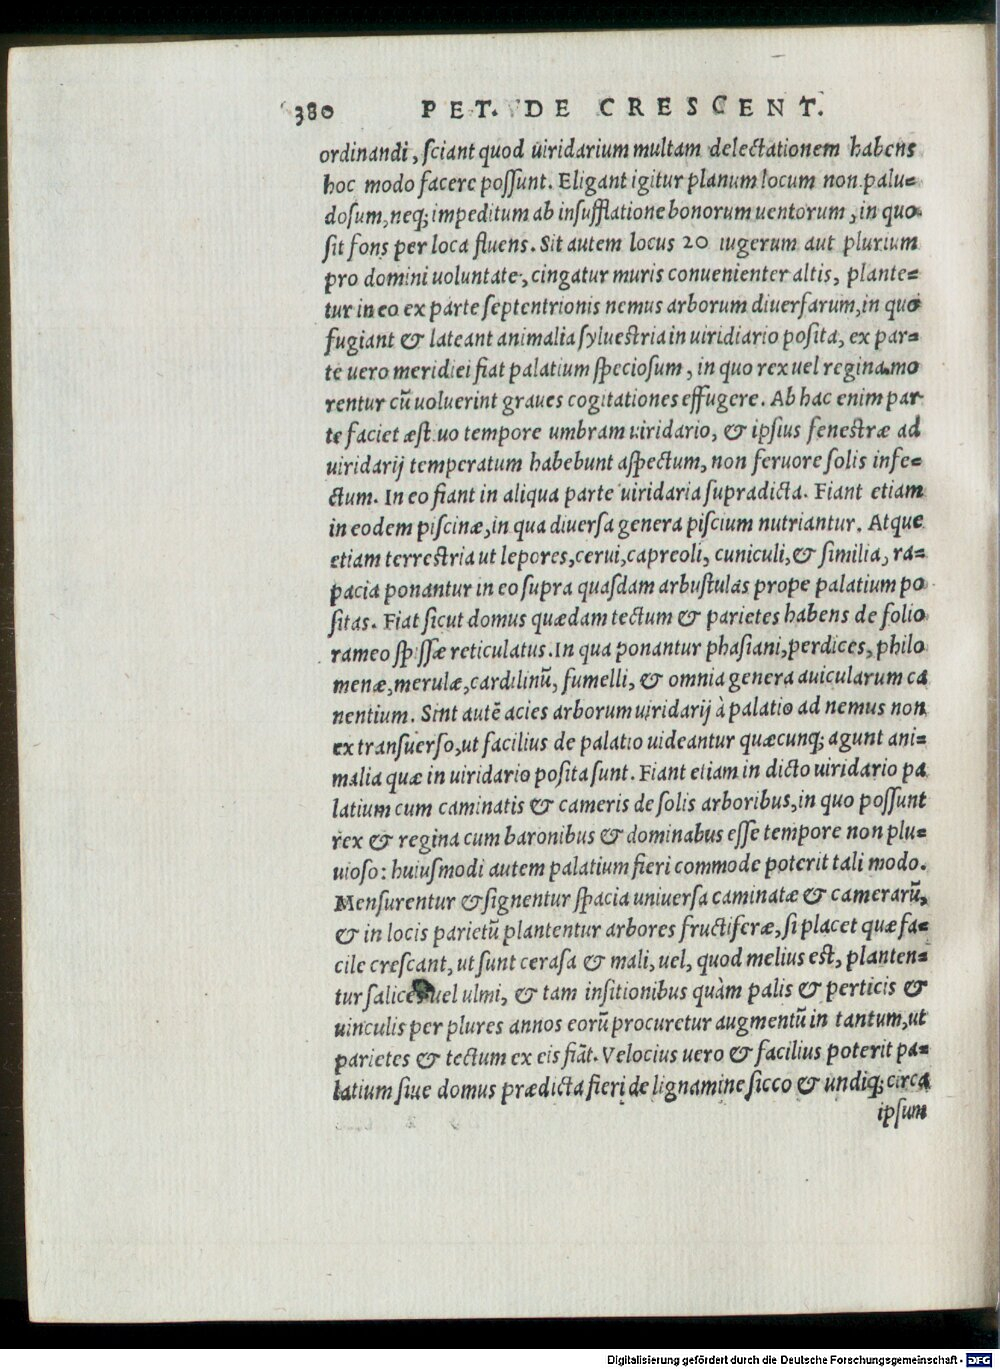 380 PET. DE CRESCENT.
ordinandi, sciant quod uiridarium multam delectationem habens
hoc modo facere possunt. Eligant igitur planum locum non palu=
dosum, neq; impeditum ab insufflatione bonorum uentorum, in quo
sit fons per loca fluens. Sit autem locus 20 iugerum aut plurium
pro domini uoluntate, cingatur muris conuenienter altis, plante=
tur in eo ex parte septentrionis nemus arborum diuersarum, in quo
fugiant & lateant animalia syluestria in uiridiario posita, ex par=
te uero meridiei fiat palatium speciosum, in quo rex uel regina mo
rentur cū uoluerint graues cogitationes effugere. Ab hac enim par
te faciet æstiuo tempore umbram uiridario, & ipsius fenestræ ad
uiridarij temperatum habebunt aspectum, non feruore solis infe=
ctum. In eo fiant in aliqua parte uiridaria supradicta. Fiant etiam
in eodem piscinæ, in qua diuersa genera piscium nutriantur. Atque
etiam terrestria ut lepores, cerui, capreoli, cuniculi, & similia, ra=
pacia ponantur in eo supra quasdam arbustulas prope palatium po
sitas. Fiat sicut domus quædam tectum & parietes habens de folio
rameo spissæ reticulatus. In qua ponantur phasiani, perdices, philo
menæ, merulæ, cardilinū, fumelli, & omnia genera auicularum ca
nentium. Sint autē acies arborum uiridarij à palatio ad nemus non
ex transuerso, ut facilius de palatio uideantur quæcunq; agunt ani=
malia quæ in uiridario posita sunt. Fiant etiam in dicto uiridario pa
latium cum caminatis & cameris de solis arboribus, in quo possunt
rex & regina cum baronibus & dominabus esse tempore non plu=
uioso: huiusmodi autem palatium fieri commode poterit tali modo.
Mensurentur & signentur spacia uniuersa caminatæ & camerarū,
& in locis parietū plantentur arbores fructiferæ, si placet quæ fa=
cile crescant, ut sunt cerasa & mali, uel, quod melius est, planten=
tur salices uel ulmi, & tam insitionibus quàm palis & perticis &
uinculis per plures annos eorū procuretur augmentū in tantum, ut
parietes & tectum ex eis fiāt. Velocius uero & facilius poterit pa=
latium siue domus prædicta fieri de lignamine sicco & undiq; circa
ipsum
Digitalisierung gefördert durch die Deutsche Forschungsgemeinschaft - DFG